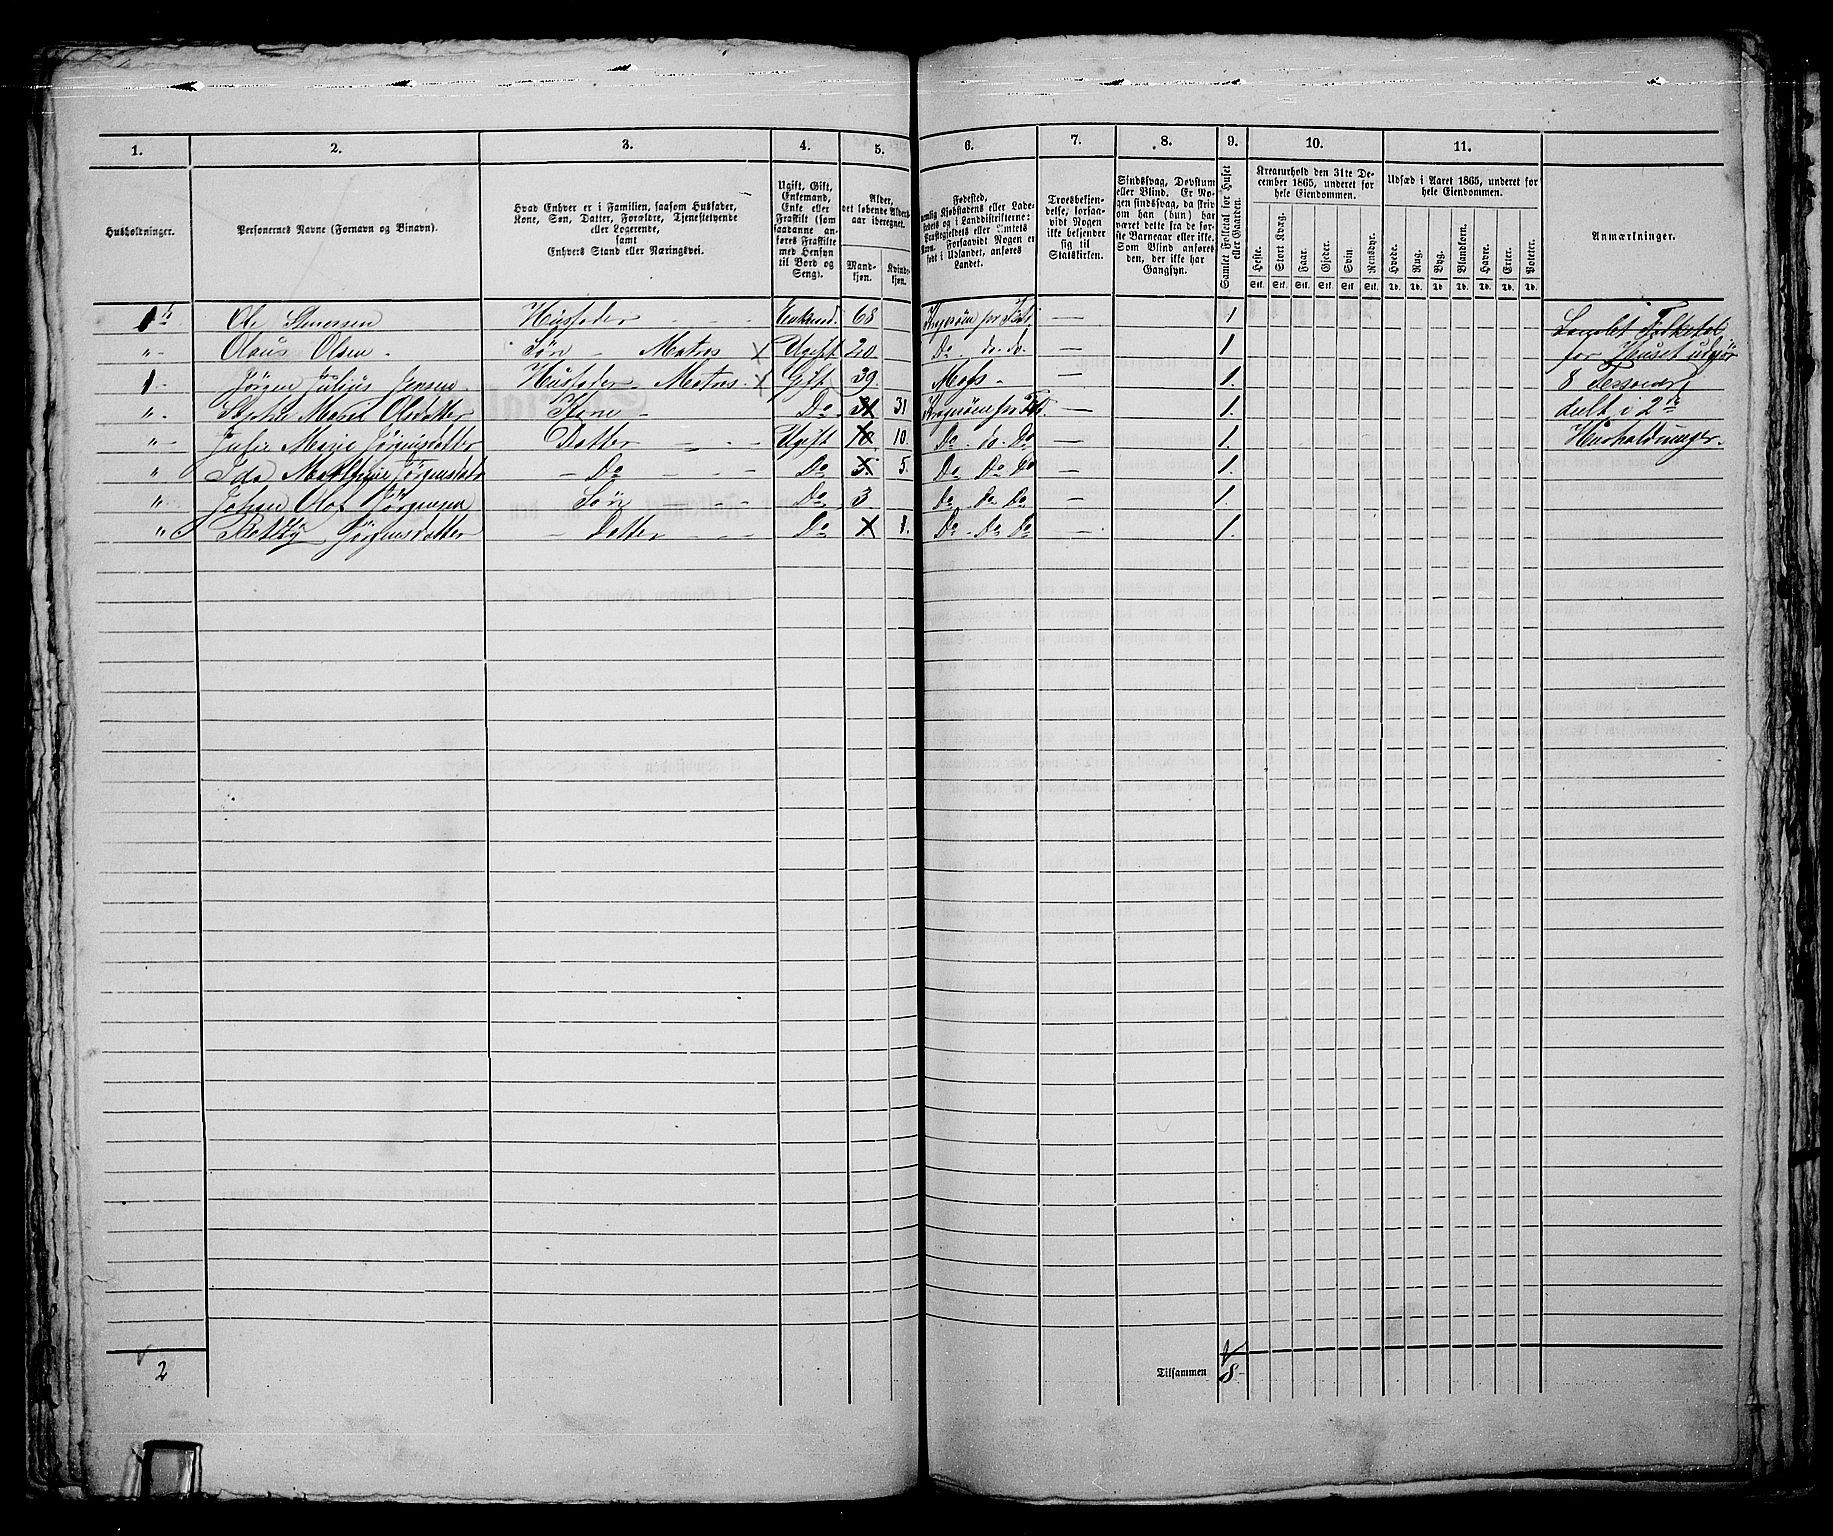 1. 2. 3. 4. 5. 6. 7. 8. 9. 10. 11.
Husholdninger.
Personernes Navne (Fornavn og Binavn).
Hvad Enhver er i Familien, saasom Husfader,
Kone, Søn, Datter, Forældre, Tjenestetyende
eller Logerende,
samt
Enhvers Stand eller Næringsvei.
Ugift, Gift,
Enkemand,
Enke eller
Fraskilt (som
saadanne an-
føres Fraskilte
med Hensyn
til Bord og
Seng).
Alder,
det løbende Alders-
aar iberegnet.
Mand-
kjøn.
Kvind-
kjøn.
Fødested,
nemlig Kjøbstadens eller Lade-
stedets og i Landdistrikterne:
Præstegjeldets eller Amtets
Navn. Forsaavidt Nogen er
født i Udlandet, anføres
Landet.
Troesbekjen-
delse, forsaa-
vidt Nogen
ikke bekjender
sig til
Statskirken.
Sindssvag, Døvstum
eller Blind. Er No-
gen sindssvag, da skriv
om han (hun) har
været dette fra de før-
ste Barneaar eller ikke.
Som Blind anføres
den, der ikke har
Gangsyn.
Samlet Folketal for Huset
eller Gaarden.
Kreaturhold den 31te De-
cember 1865, underet for
hele Eiendommen.
Heste. Stort Kvæg. Faar. Gjeder. Svin. Rensdyr.
Stk. Stk. Stk. Stk. Stk. Stk.
Udsæd i Aaret 1865, underet for
hele Eiendommen.
Hvede. Rug. Byg. Blandkorn. Havre. Erter. Poteter.
Td. Td. Td. Td. Td. Td. Td.
Anmærkninger.
1 Ole Husfader - - - Enkemd. 68 — 1
" Olaus Olsen Søn - Matros X Ugift 20 Do. do. do. — 1
1 Jørgen Julius Jensen Husfader Matros X Gift 39 Moss — 1.
" Marie Olsdatter Kone - Do 31 31 — 1.
" Julie Marie Jørgensdatter Datter - - - Ugift 10 10. Do. do. Do — 1.
" Ida Mathilde Jørgensdatr - Do Do 5. 5. Do Do Do — 1.
" Johan Olaf Jørgensen Søn - - Do 3 Do Do Do — 1.
" Betzy Jørgensdatter - Datter - - - Do 1. Do - Do Do — 1.
Samlet Folketal
for Huset udgjør
8 Personer
delt i 2de
Husholdninger.
2
Tilsammen 8